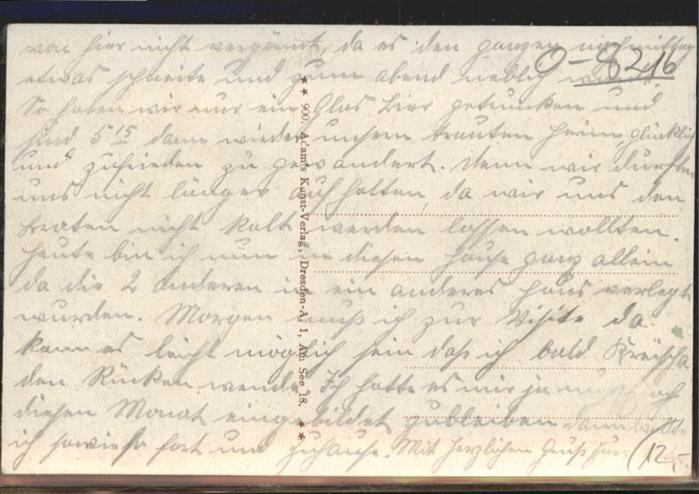 von hier nicht vergönnt, da es den ganzen nachmittag
etwas schneite und zum abend neblich
9-8216
So haben wir nur ein Glas Bier getrunken und
sind 5 15 dann wieder unserm trauten Heim glücklich
und zufrieden zu gewandert. Denn wir durften
uns nicht länger aufhalten, da wir uns den
Braten nicht kalt werden lassen wollten.
Heute bin ich nun in diesem Hause ganz allein
da die 2 anderen in ein anderes Haus verlegt
wurden. Morgen muß ich zur Visite da
kann es leicht möglich sein daß ich bald Kreischa
den Rücken wende. Ich hatte es mir ja nur noch
diesen Monat eingebildet zubleiben dann wollte
ich sowieso fort und zuhause. Mit herzlichem Gruß
(12,-
** 900. Adam's Kunst-Verlag, Dresden-A. 1, Am See 18. **